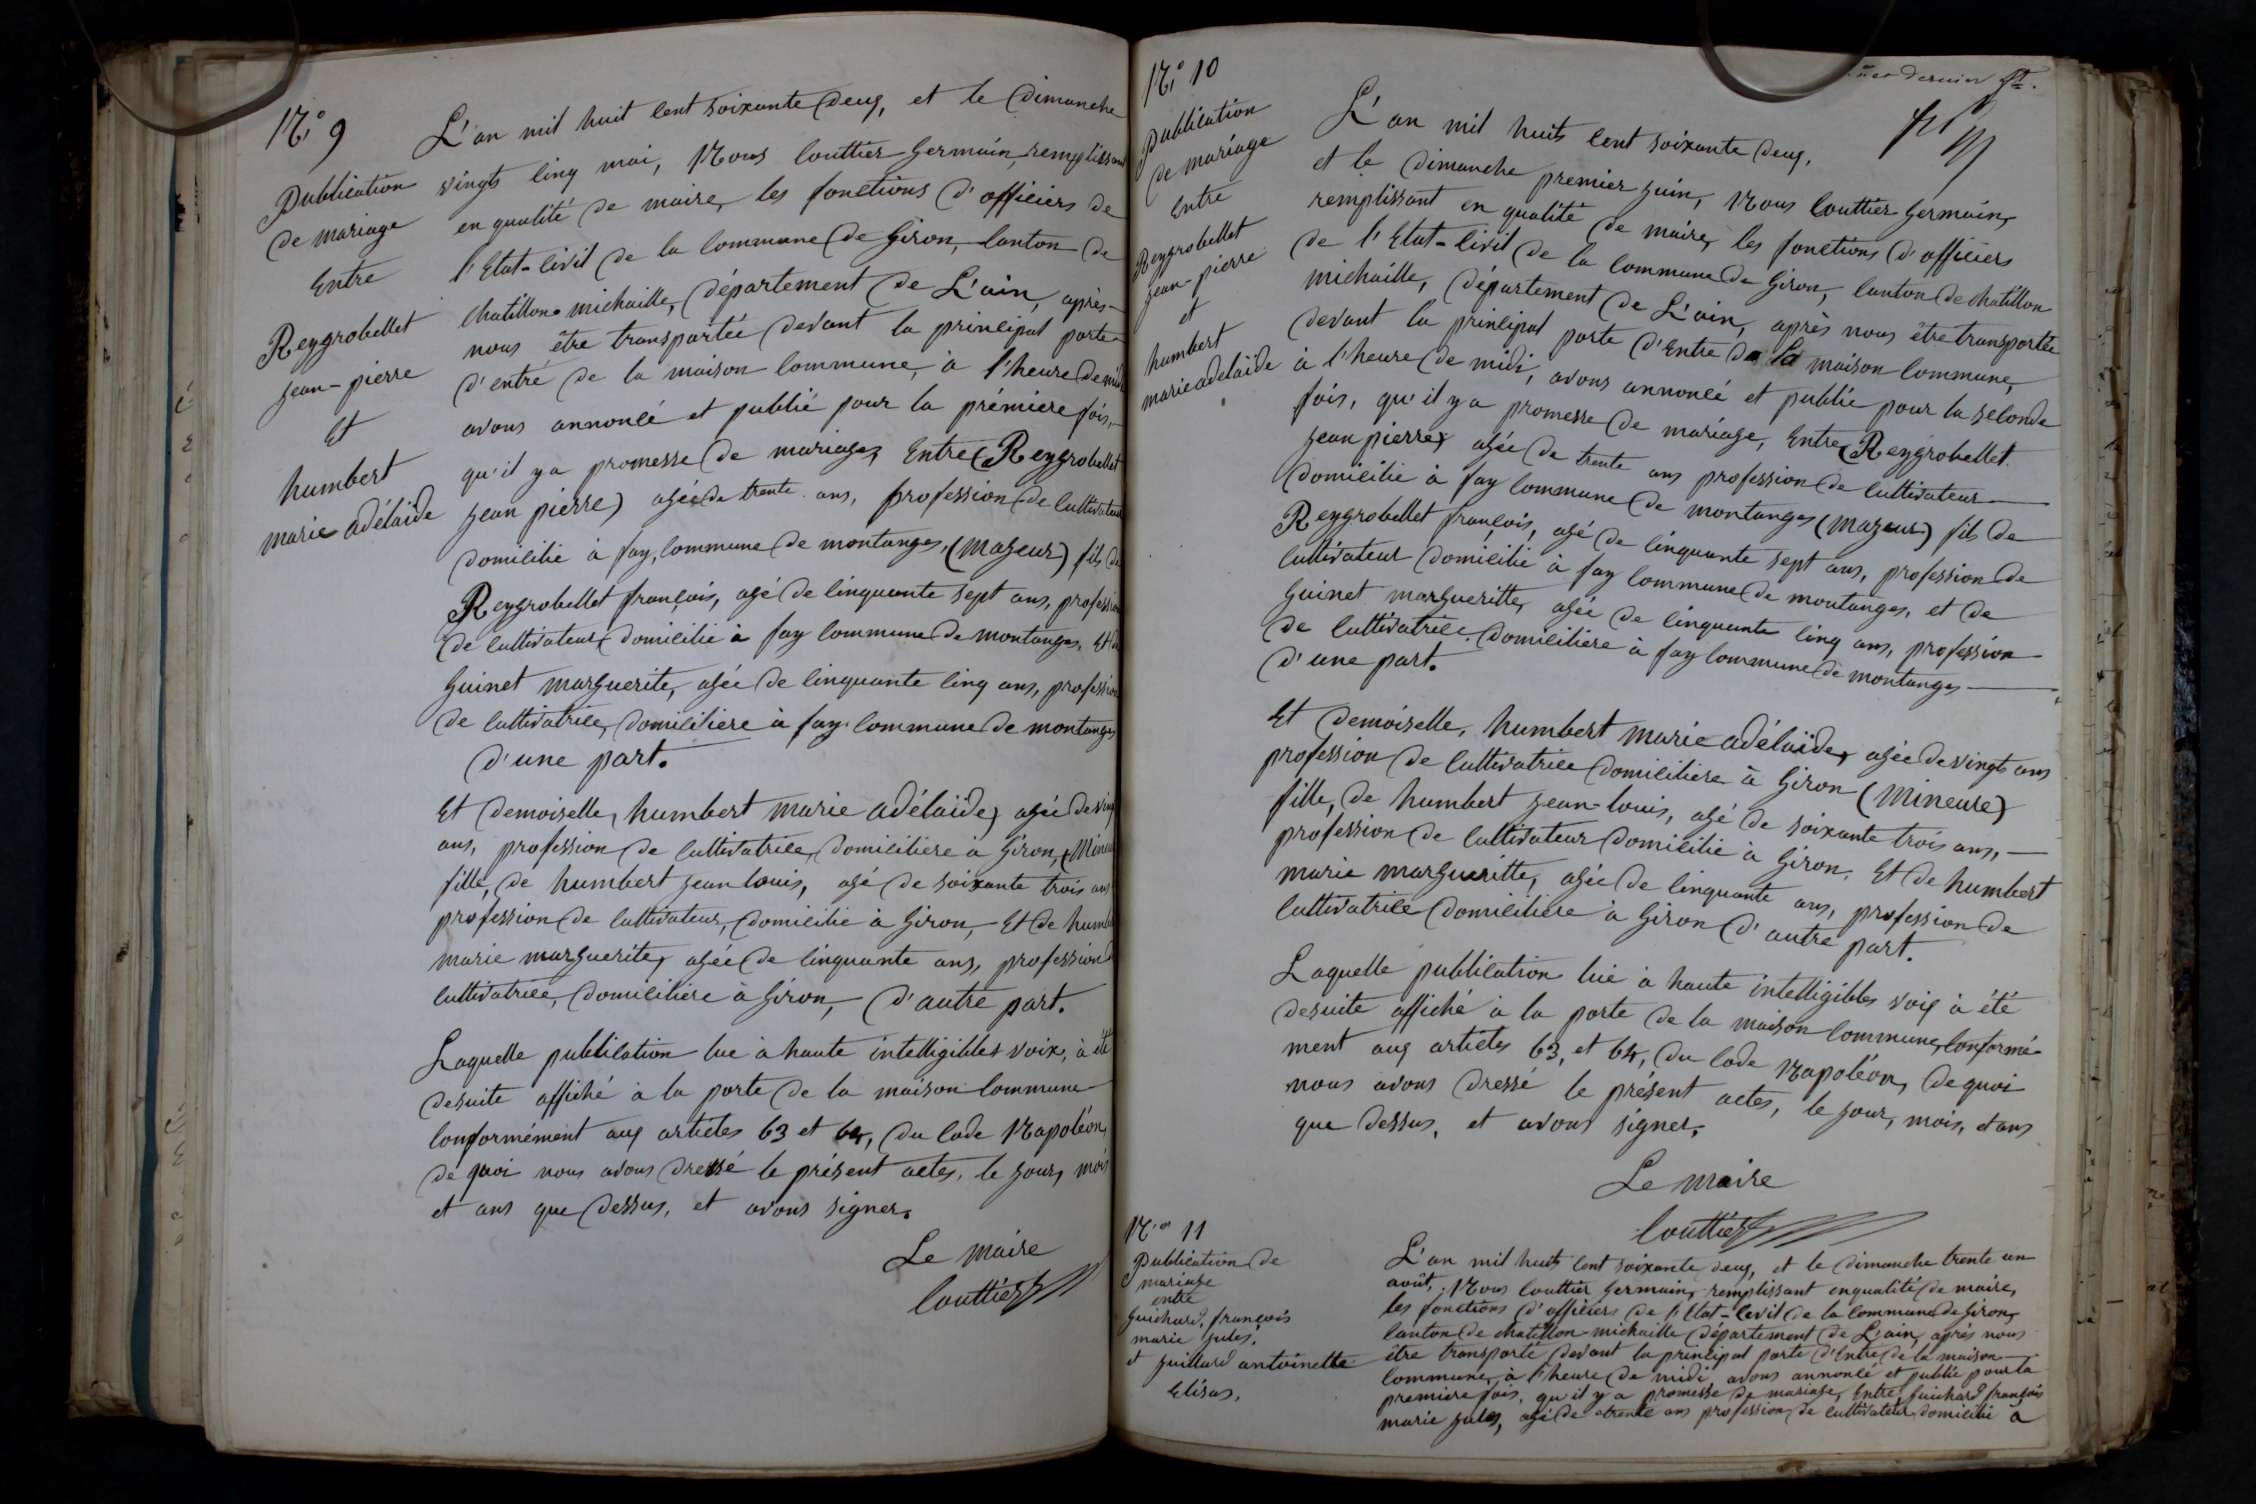 N.° 9
Publication
de mariage
Entre
Reygrobellet
jean-pierre
Et
humbert
marie adélaïde
L'an mil huit cent soixante deux, et le dimanche
vingts cinq mai, Nous Couttier Germain, remplissant
en qualité de maire, les fonctions d'officiers de
l'Etat-civil de la commune de Giron, canton de
chatillon-michaille, département de L'ain, après
nous être transportée devant la principal porte
d'entré de la maison commune, à l'heure de midi
avons annoncé et publié pour la première fois,
qu'il y a promesse de mariage, Entre (Reygrobellet
jean pierre) agée de trente ans, profession de cultivateur
domicilié à fay, commune de montanges, (majeur) fils de
Reygrobellet françois, agé de cinquante sept ans, profession
de cultivateur, domicilié à fay commune de montanges, Et de
Guinet marguerite, agée de cinquante cinq ans, profession
de cultivatrice, domicilière à fay commune de montanges
d'une part.
Et demoiselle, humbert marie adélaïde, agée de vingt
ans, profession de cultivatrice, domicilière à Giron, (Mineure
fille, de humbert jean louis, agé de soixante trois ans
profession de cultivateur, domicilié à Giron, Et de humbert
marie marguerite, agée de cinquante ans, profession de
cultivatrice, domicilière à Giron, d'autre part.
Laquelle publication lue à haute intelligibles voix, à été
desuite affiché à la porte de la maison commune
conformément aux articles 63 et 64, du code Napoléon,
de quoi nous avons dressé le présent actes, le jour, mois
et ans que dessus, et avons signer.
Le maire
Couttier
N.° 10
Publication
de mariage
Entre
Reygrobellet
jean-pierre
et
humbert
marie adelaïde
dernier
L'an mil huits cent soixante deux,
et le dimanche premier juin, Nous Couttier Germain,
remplissant en qualité de maire, les fonctions d'officiers
de l'Etat-civil de la commune de Giron, canton de chatillon
michaille, département de L'ain, après nous être transportée
devant la principal porte d'Entre de la maison commune,
à l'heure de midi, avons annoncé et publié pour la seconde
fois, qu'il y a promesse de mariage, Entre (Reygrobellet
jean pierre) agée de trente ans profession de cultivateur
domicilié à fay commune de montanges (majeur) fils de
Reygrobellet françois, agé de cinquante sept ans, profession de
cultivateur domicilié à fay commune de montanges, et de
Guinet margueritte, agée de cinquante cinq ans, profession
de cultivatrice domicilière à fay commune de montanges
d'une part.
Et demoiselle, humbert marie adélaïde, agée de vingts ans
profession de cultivatrice domicilière à Giron (Mineure)
fille, de humbert jean-louis, agé de soixante trois ans,
profession de cultivateur domicilié à Giron, Et de humbert
marie margueritte, agée de cinquante ans, profession de
cultivatrice domicilière à Giron d'autre part.
Laquelle publication lue à haute intelligibles voix à été
desuite affiché à la porte de la maison commune, conformé-
ment aux articles 63, et 64, du code Napoléon, de quoi
nous avons dressé le présent actes, le jour, mois, et ans
que dessus, et avons signer.
Le maire
Couttier
N.° 11
Publication de
mariage
entre
Guichard, françois
marie jules,
et juillard antoinette
Elisas.
L'an mil huits cent soixante deux, et le dimanche trente un
août, Nous Couttier Germain, remplissant en qualité de maire,
les fonctions d'officiers de l'Etat-Civil de la commune de Giron,
canton de chatillon michaille département de L'ain, après nous
être transporté devant la principal porte d'Entre de la maison
commune, à l'heure de midi avons annoncé et publié pour la
première fois, qu'il y a promesse de mariage, Entre Guichard françois
marie jules, agé de trente ans profession de cultivateur, domicilié à